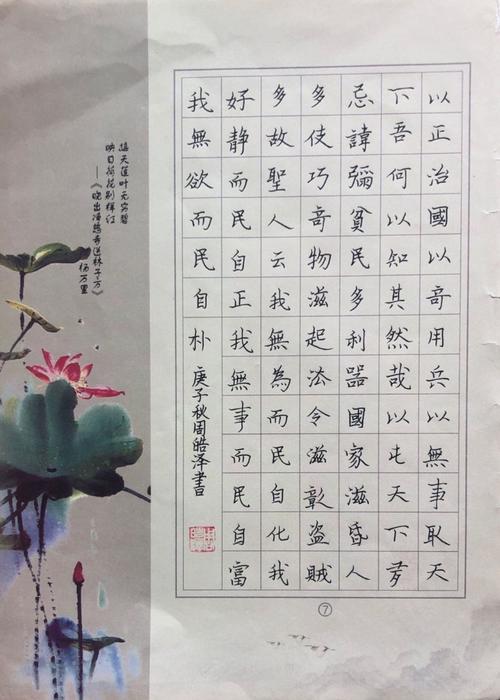 以正治國以奇用兵以無事取天
下吾何以知其然哉以此天下夛
忌諱彌貧民多利器國家滋昏人
多使巧奇物滋起法令滋彰盗賊
多故聖人云我無為而民自化我
好静而民自正我無事而民自富
我無欲而民自朴 庚子秋周皓泽書
接天莲叶无穷碧
映日荷花别样红
——《晓出净慈寺送林子方》
杨万里
⑦